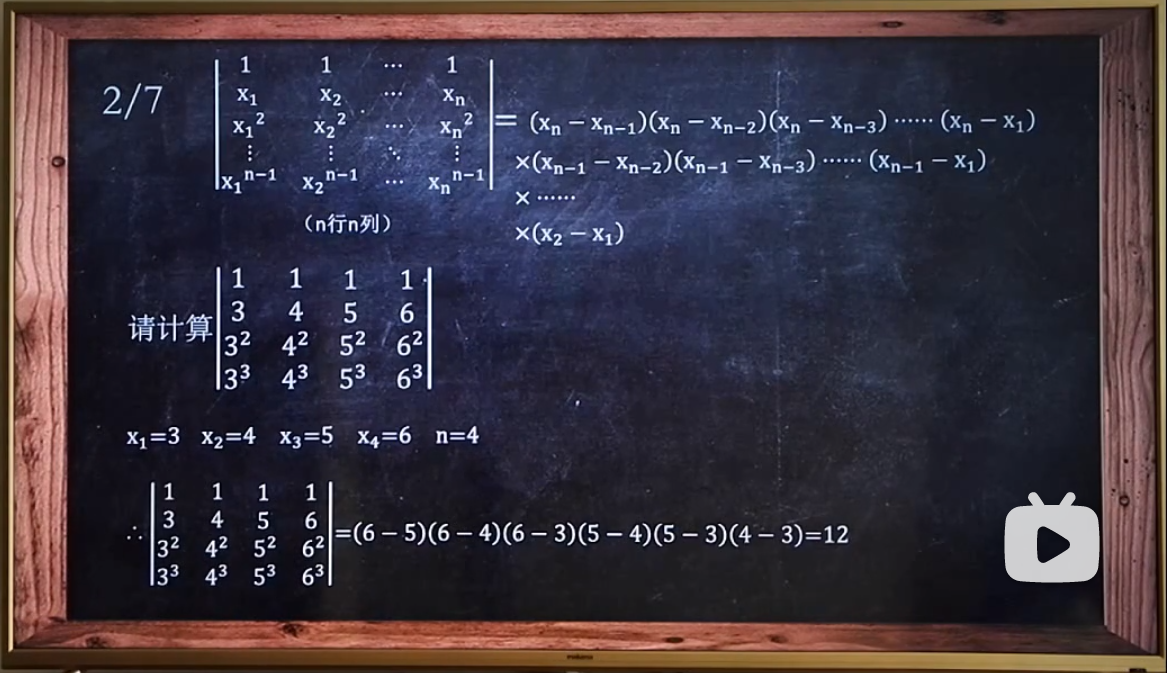 2/7
| 1 1 ⋯ 1 |
| x₁ x₂ ⋯ xₙ |
| x₁² x₂² ⋯ xₙ² |
| ⋮ ⋮ ⋱ ⋮ |
| x₁ⁿ⁻¹ x₂ⁿ⁻¹ ⋯ xₙⁿ⁻¹ |
= (xₙ − xₙ₋₁)(xₙ − xₙ₋₂)(xₙ − xₙ₋₃) ⋯⋯ (xₙ − x₁)
×(xₙ₋₁ − xₙ₋₂)(xₙ₋₁ − xₙ₋₃) ⋯⋯ (xₙ₋₁ − x₁)
× ⋯⋯
×(x₂ − x₁)
（n行n列）
请计算
| 1 1 1 1 |
| 3 4 5 6 |
| 3² 4² 5² 6² |
| 3³ 4³ 5³ 6³ |
x₁=3 x₂=4 x₃=5 x₄=6 n=4
∴
| 1 1 1 1 |
| 3 4 5 6 |
| 3² 4² 5² 6² |
| 3³ 4³ 5³ 6³ |
=(6 − 5)(6 − 4)(6 − 3)(5 − 4)(5 − 3)(4 − 3)=12